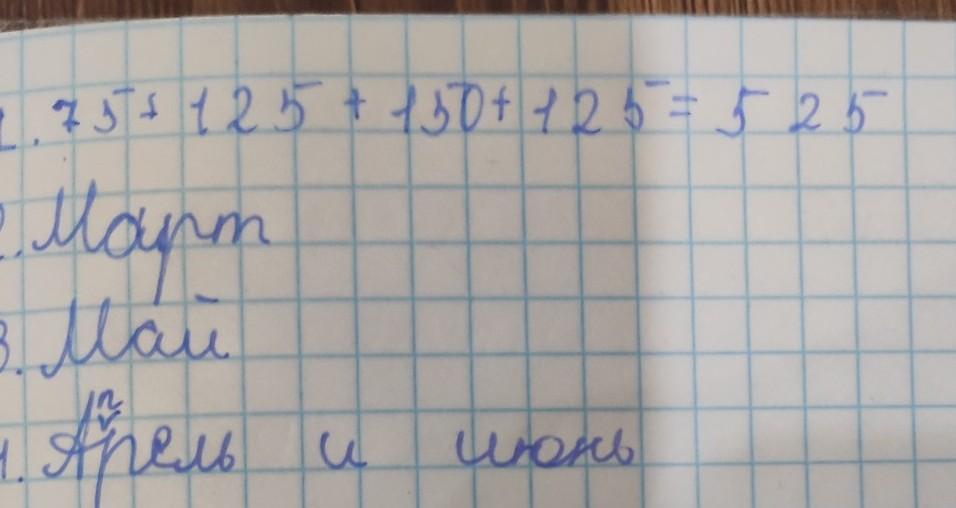 1. 75+ 125 + 150+ 125 = 525
2. Март
3. Май
4. Апрель и июнь